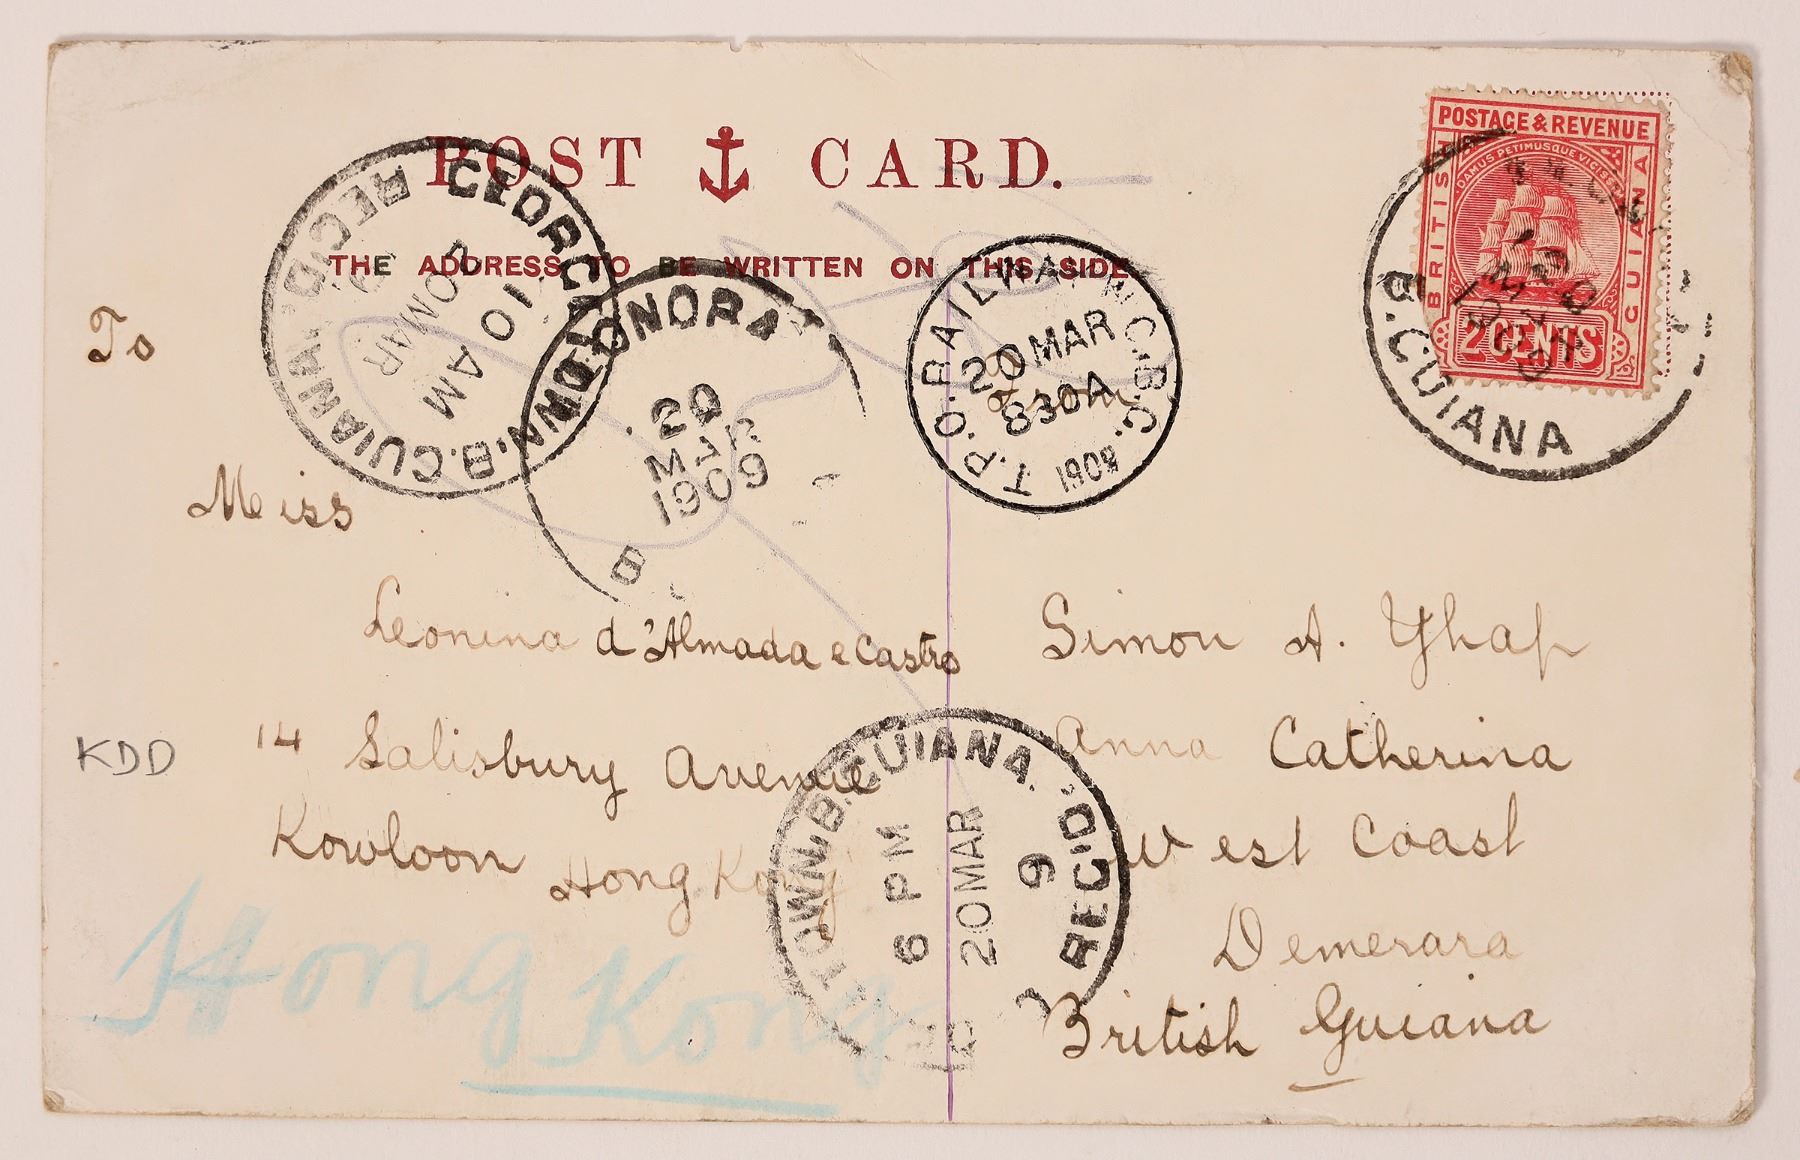 POST CARD.
THE ADDRESS TO BE WRITTEN ON THIS SIDE
POSTAGE & REVENUE
BRITISH
GUIANA
DAMUS PETIMUSQUE VICISSIM
2 CENTS
B. GUIANA
GEORGETOWN. B. GUIANA. REG'D
10 AM
20 MAR
9
LEONORA
20
MAR
1909
B
T.P.O. RAILWAY W.C.B.C.
20 MAR
830A
1909
To
From
Miss
Leonina d'Almada e Castro
14 Salisbury Avenue
Kowloon Hong Kong
KDD
Hong Kong
Simon A. Yhap
Anna Catherina
West Coast
Demerara
British Guiana
TOWN. B. GUIANA. REC'D
6 PM
20 MAR
9